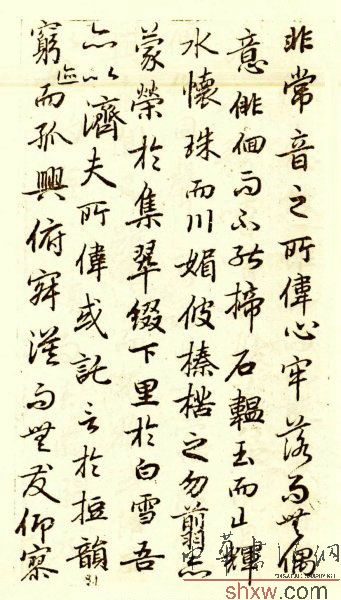 非常音之所偉心牢落而無偶
意俳佪而不能揥石韞玉而山輝
水懷珠而川媚彼榛楛之勿翦亦
蒙榮於集翠綴下里於白雪吾
亦以濟夫所偉或託言於短韻對
窮迹而孤興俯寂漠而無友仰寥
shxw.com